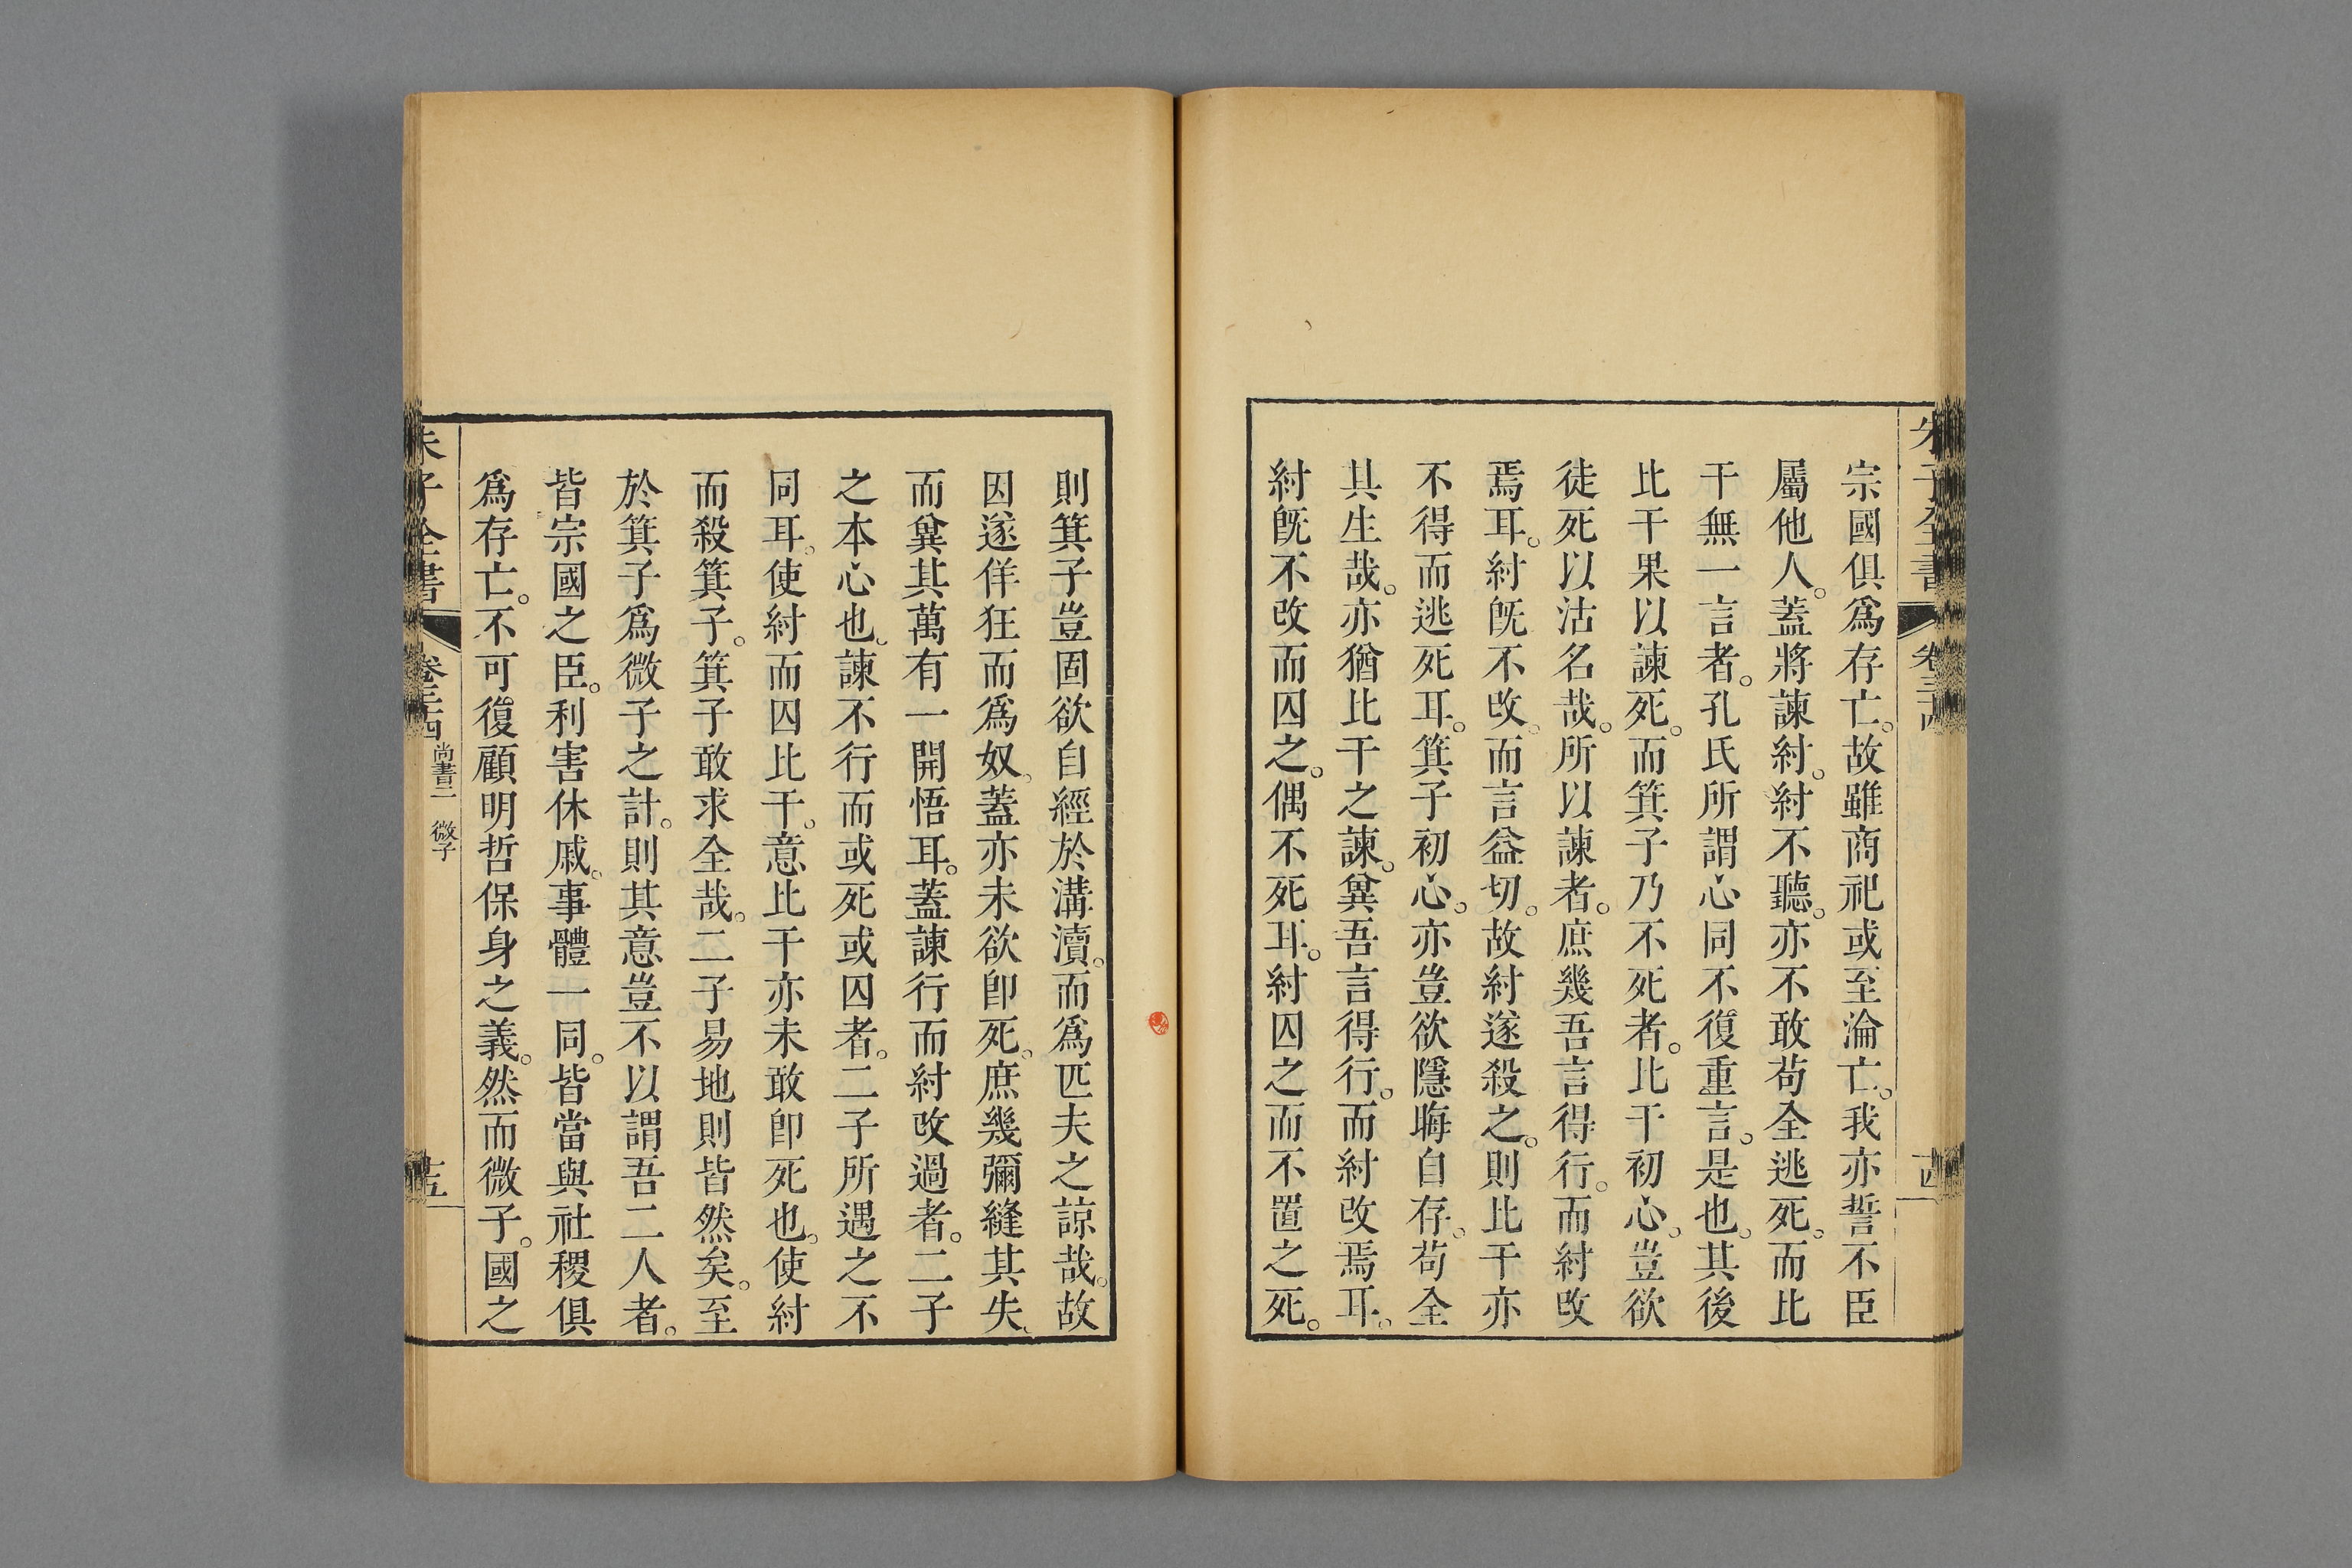 宗國俱爲存亡。故雖商祀或至淪亡。我亦誓不臣
屬他人。蓋將諫紂。紂不聽。亦不敢苟全逃死。而比
干無一言者。孔氏所謂心同不復重言。是也。其後
比干果以諫死。而箕子乃不死者。比干初心。豈欲
徒死以沽名哉。所以諫者。庶幾吾言得行。而紂改
焉耳。紂旣不改。而言益切。故紂遂殺之。則比干亦
不得而逃死耳。箕子初心。亦豈欲隱晦自存。苟全
其生哉。亦猶比干之諫。冀吾言得行。而紂改焉耳。
紂旣不改而囚之。偶不死耳。紂囚之而不置之死。
則箕子豈固欲自經於溝瀆。而爲匹夫之諒哉。故
因遂佯狂而爲奴。蓋亦未欲卽死。庶幾彌縫其失。
而冀其萬有一開悟耳。蓋諫行而紂改過者。二子
之本心也。諫不行而或死或囚者。二子所遇之不
同耳。使紂而囚比干。意比干亦未敢卽死也。使紂
而殺箕子。箕子敢求全哉。二子易地則皆然矣。至
於箕子爲微子之計。則其意豈不以謂吾二人者。
皆宗國之臣。利害休戚。事體一同。皆當與社稷俱
爲存亡。不可復顧明哲保身之義。然而微子。國之
朱子全書 卷三十四 尚書二 微子 十五